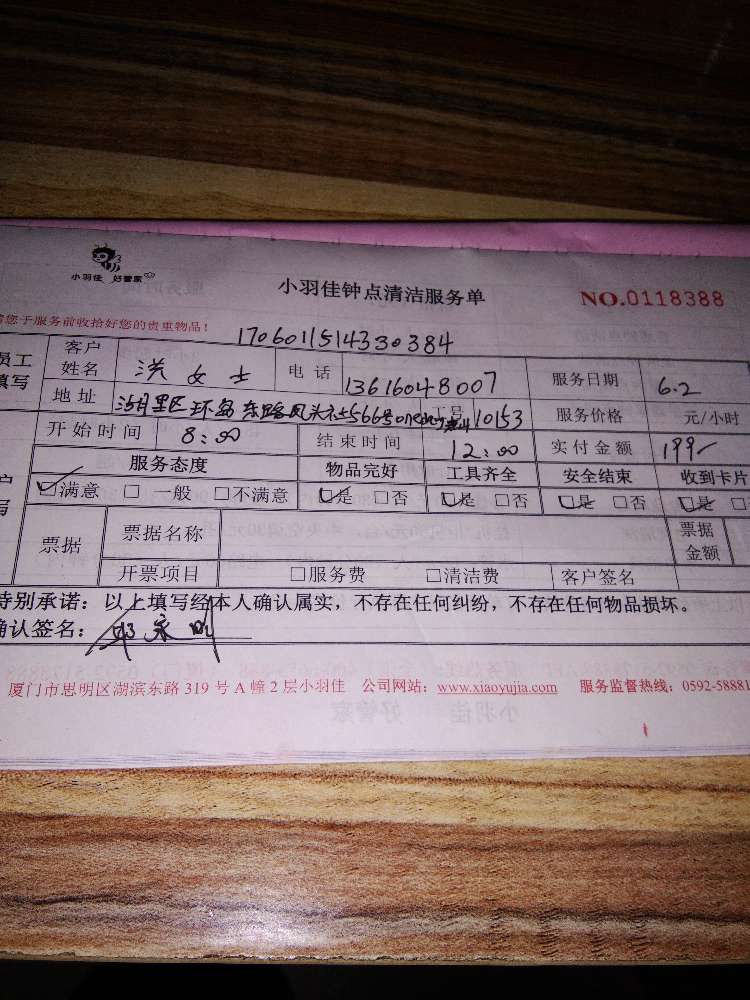 小羽佳 好管家
小羽佳钟点清洁服务单
NO.0118388
您于服务前收拾好您的贵重物品！
170601151433 0384
员工填写 客户姓名 洪女士 电话 13616048007 服务日期 6.2
地址 湖里区环岛东路凤头社566号 工号 10153 服务价格 元/小时
开始时间 8:00 结束时间 12:00 实付金额 199
服务态度 物品完好 工具齐全 安全结束 收到卡片
☑满意 □一般 □不满意 ☑是 □否 ☑是 □否 ☑是 □否 ☑是 □
票据 票据名称 票据金额
开票项目 □服务费 □清洁费 客户签名
特别承诺：以上填写经本人确认属实，不存在任何纠纷，不存在任何物品损坏。
确认签名：
厦门市思明区湖滨东路 319 号 A 幢 2 层小羽佳 公司网站：www.xiaoyujia.com 服务监督热线：0592-58881